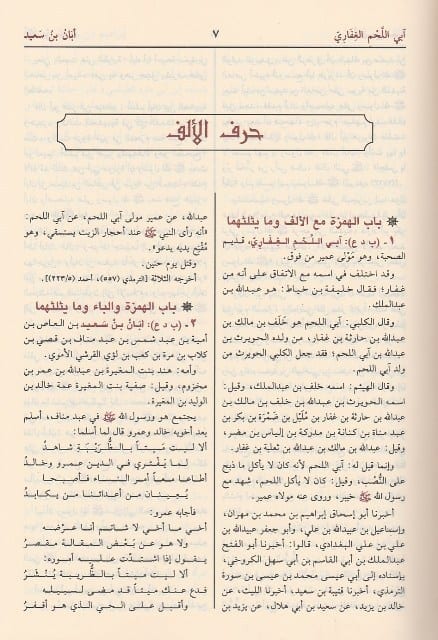 آبي اللَّحْم الغِفَارِيّ
٧
أبَانُ بنُ سَعِيد
حرف الألف
* باب الهمزة مع الألف وما يثلثهما
١ - (ب د ع): آبي اللَّحْم الغِفَارِيّ، قديم
الصحبة، وهو مَوْلى عمير من فوق.
وقد اختلف في اسمه مع الاتفاق على أنه من
غفار؛ فقال خليفة بن خياط: هو عبدالله بن
عبدالملك.
وقال الكلبي: آبي اللحم هو خَلَف بن مالك بن
عبدالله بن حارثة بن غفار، من ولده الحويرث بن
عبدالله بن آبي اللحم؛ فقد جعل الكلبي الحويرث من
ولد آبي اللحم.
وقال الهيثم: اسمه خلف بن عبدالملك، وقيل:
اسمه الحويرث بن عبدالله بن خلف بن مالك بن
عبدالله بن حارثة بن غفار بن مُلَيْل بن ضَمْرَة بن بكر بن
عبد مناة بن كنانة بن مدركة بن إلياس بن مضر،
وقيل: عبدالله بن مالك بن عبدالله بن ثعلبة بن غفار.
وإنما قيل له: آبي اللحم لأنه كان لا يأكل ما ذبح
على النُّصُب، وقيل: كان لا يأكل اللحم، شهد مع
رسول الله ﷺ خيبر، وروى عنه مولاه عمير.
أخبرنا أبو إسحاق إبراهيم بن محمد بن مهران،
وإسماعيل بن عبيدالله بن علي، وأبو جعفر عبيدالله بن
علي بن علي البغدادي، قالوا: أخبرنا أبو الفتح
عبدالملك بن أبي القاسم بن أبي سهل الكروخي،
بإسناده إلى أبي عيسى محمد بن عيسى بن سورة
الترمذي، أخبرنا قتيبة بن سعيد، أخبرنا الليث، عن
خالد بن يزيد، عن سعيد بن أبي هلال، عن يزيد بن
عبدالله، عن عمير مولى آبي اللحم، عن آبي اللحم:
«أنه رأى النبي ﷺ عند أحجار الزيت يستسقي، وهو
مُقْنِع بديه يدعو».
وقتل يوم حنين.
أخرجه الثلاثة [الترمذي (٥٥٧)، أحمد (٢٢٣/٥)].
* باب الهمزة والباء وما يثلثهما
٢ - (ب د ع): أبَانُ بنُ سَعِيد بن العاص بن
أمية بن عبد شمس بن عبد مناف بن قصي بن
كلاب بن مرة بن كعب بن لؤي القرشي الأموي.
وأمه: هند بنت المغيرة بن عبدالله بن عمر بن
مخزوم، وقيل: صفية بنت المغيرة عمة خالد بن
الوليد بن المغيرة.
يجتمع هو ورسول الله ﷺ في عبد مناف، أسلم
بعد أخويه خالد وعمرو فقال لما أسلما:
ألا ليت ميتاً بالظُّرَيْبَةِ شاهدٌ
لما يَفْتَري في الدين عمرو وخالدُ
أطاعا معاً أمر النساء فأصبحا
يُعِينان من أعدائنا من يكابدُ
فأجابه عمرو:
أخي ما أخي لا شاتم أنا عِرْضه
ولا هو عن بَعْض المقالة مقصرُ
يقول إذا اشتدّت عليه أموره:
ألا ليت ميتاً بالظُّريبة يُنْشَرُ
فدع عنك ميتاً قد مضى لسبيله
وأقبل على الحي الذي هو أفقرُ